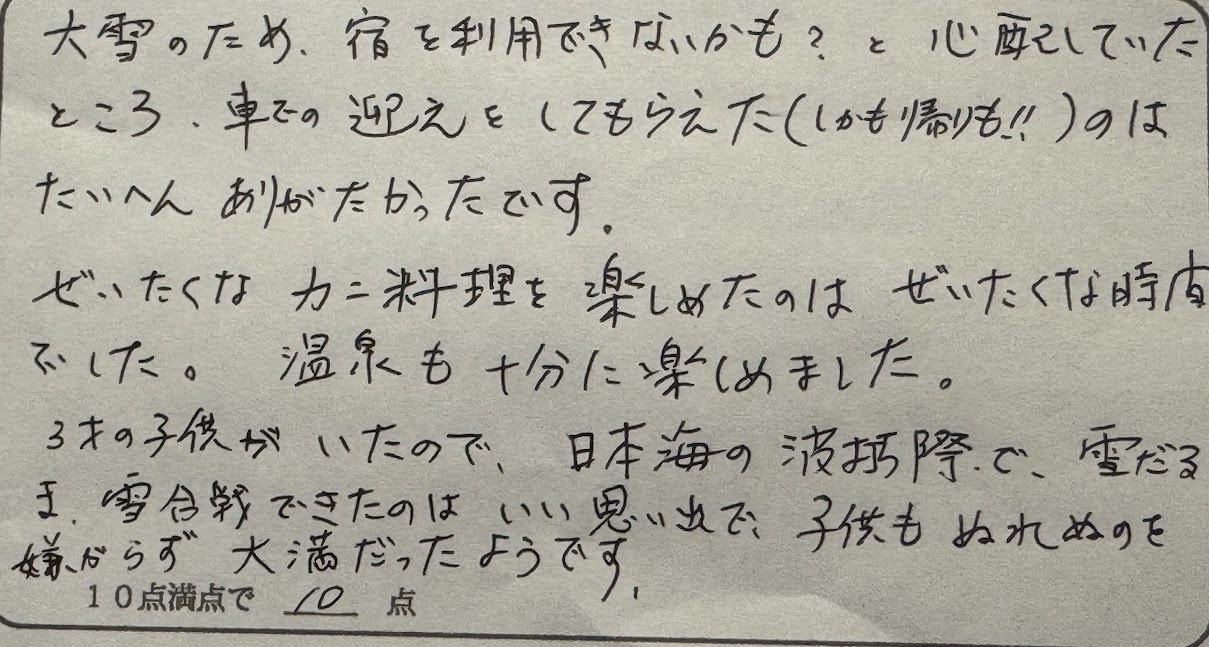 大雪のため、宿を利用できないかも？と 心配していた
ところ、車での迎えをしてもらえた(しかも帰りも!!)のは
たいへん ありがたかったです。
ぜいたくな カニ料理を 楽しめたのは ぜいたくな時間
でした。 温泉も 十分に楽しめました。
3才の子供が いたので、日本海の 波打際で、雪だる
ま、雪合戦できたのは いい思い出で、子供も ぬれぬのを
嫌がらず 大満だったようです。
10点満点で 10 点